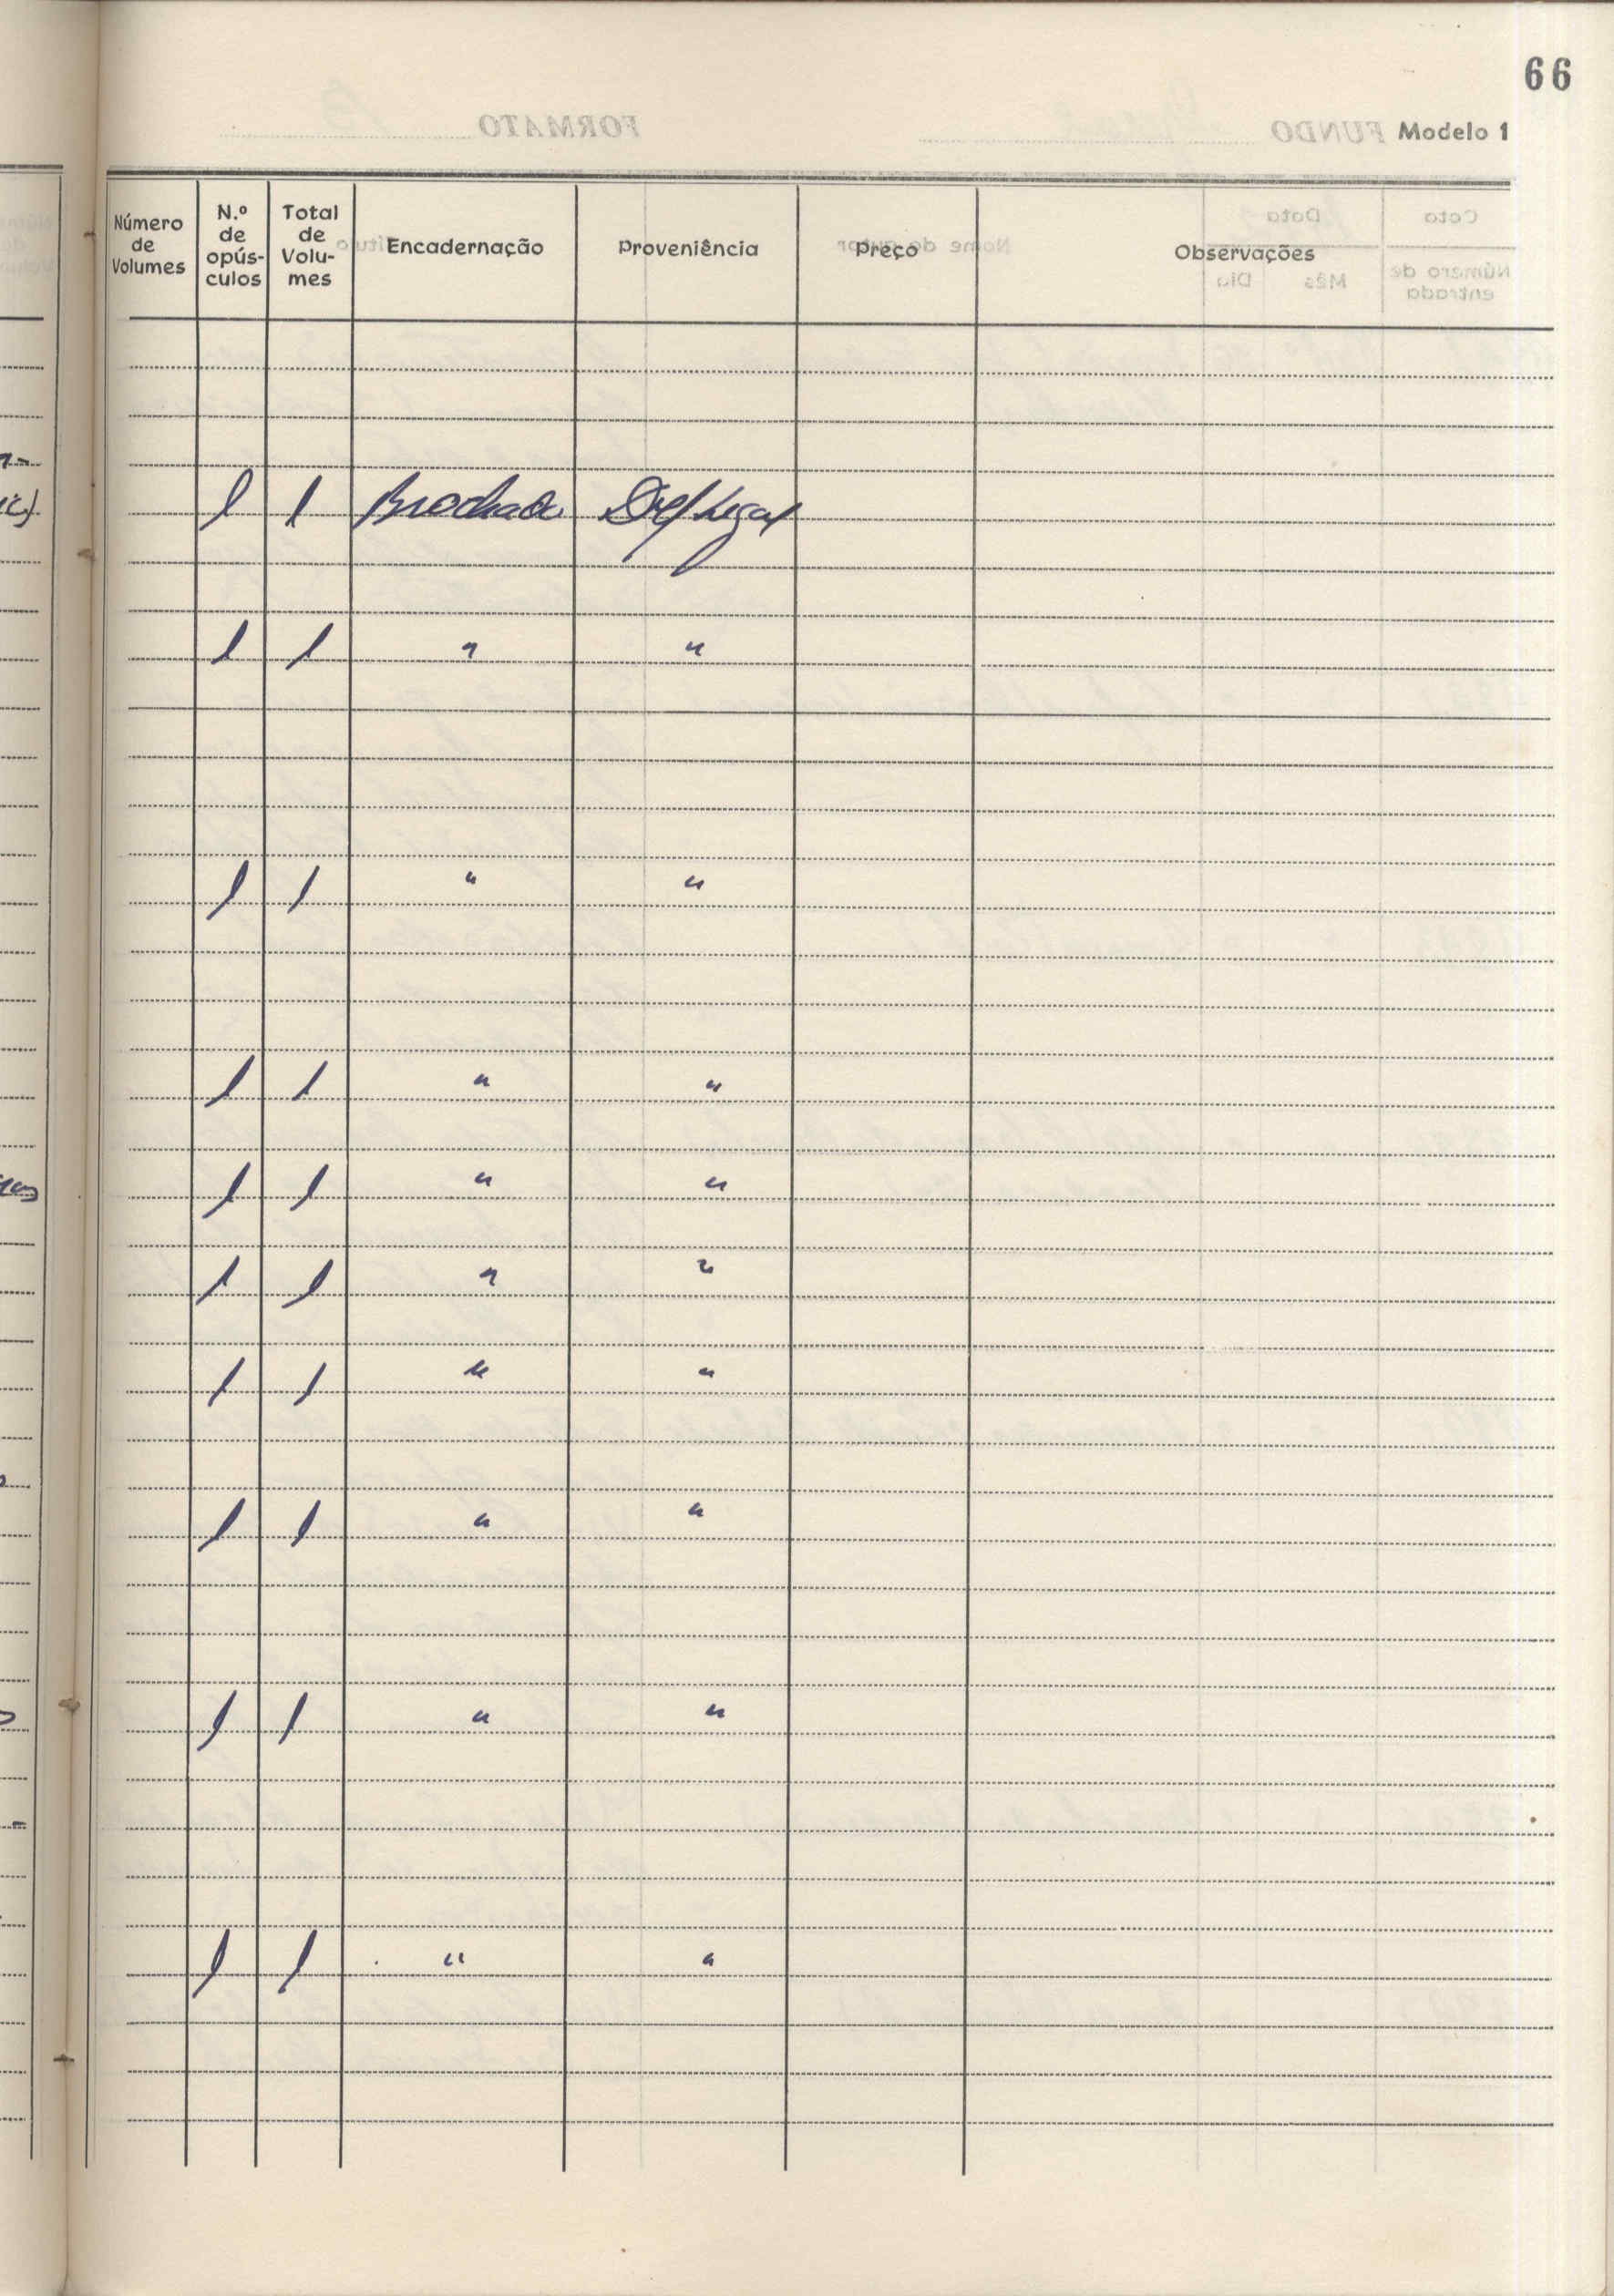 66
Modelo 1
Número de Volumes | N.º de opús-culos | Total de Volu-mes | Encadernação | Proveniência | Preço | Observações
1 1 Brochado Dep Legal
1 1 " "
1 1 " "
1 1 " "
1 1 " "
1 1 " "
1 1 " "
1 1 " "
1 1 " "
1 1 " "